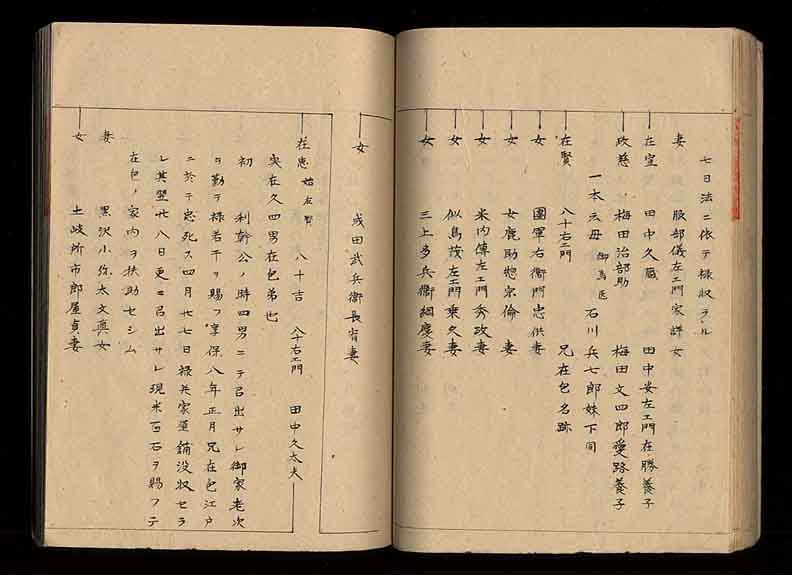 七日法ニ依テ禄収ラル
妻 服部儀左エ門家詳女
在宣 田中久蔵 田中安左エ門在勝養子
政慈 梅田治部助 梅田文四郎愛路養子
一本云母 御馬医 石川兵七郎妹下同
在賢 八十右エ門 兄在包名跡
女 團軍右衛門忠供妻
女 女鹿助惣宗倫妻
女 米内傳左エ門秀政妻
女 似鳥茂左エ門乗久妻
女 三上多兵衛綱慶妻
女 成田武兵衛長宥妻
在恵 始友賢 八十吉 八十右エ門 田中久太夫
実在久四男在包弟也
初 利幹公ノ時四男ニテ召出サレ御家老次
ヲ勤テ禄若干ヲ賜フ享保八年正月兄在包江戸
ニ於テ忠死ス四月廿七日禄共家屋鋪没収セラ
レ其翌廿八日更ニ召出サレ現米百石ヲ賜フテ
在包ノ家内ヲ扶助セシム
妻 黒沢小弥太文真女
女 土岐所市郎屋貞妻